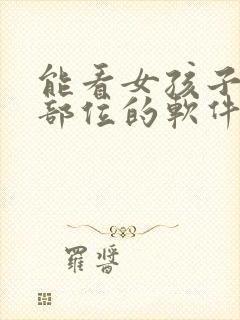 能看女孩子
部位的軟件
羅晉